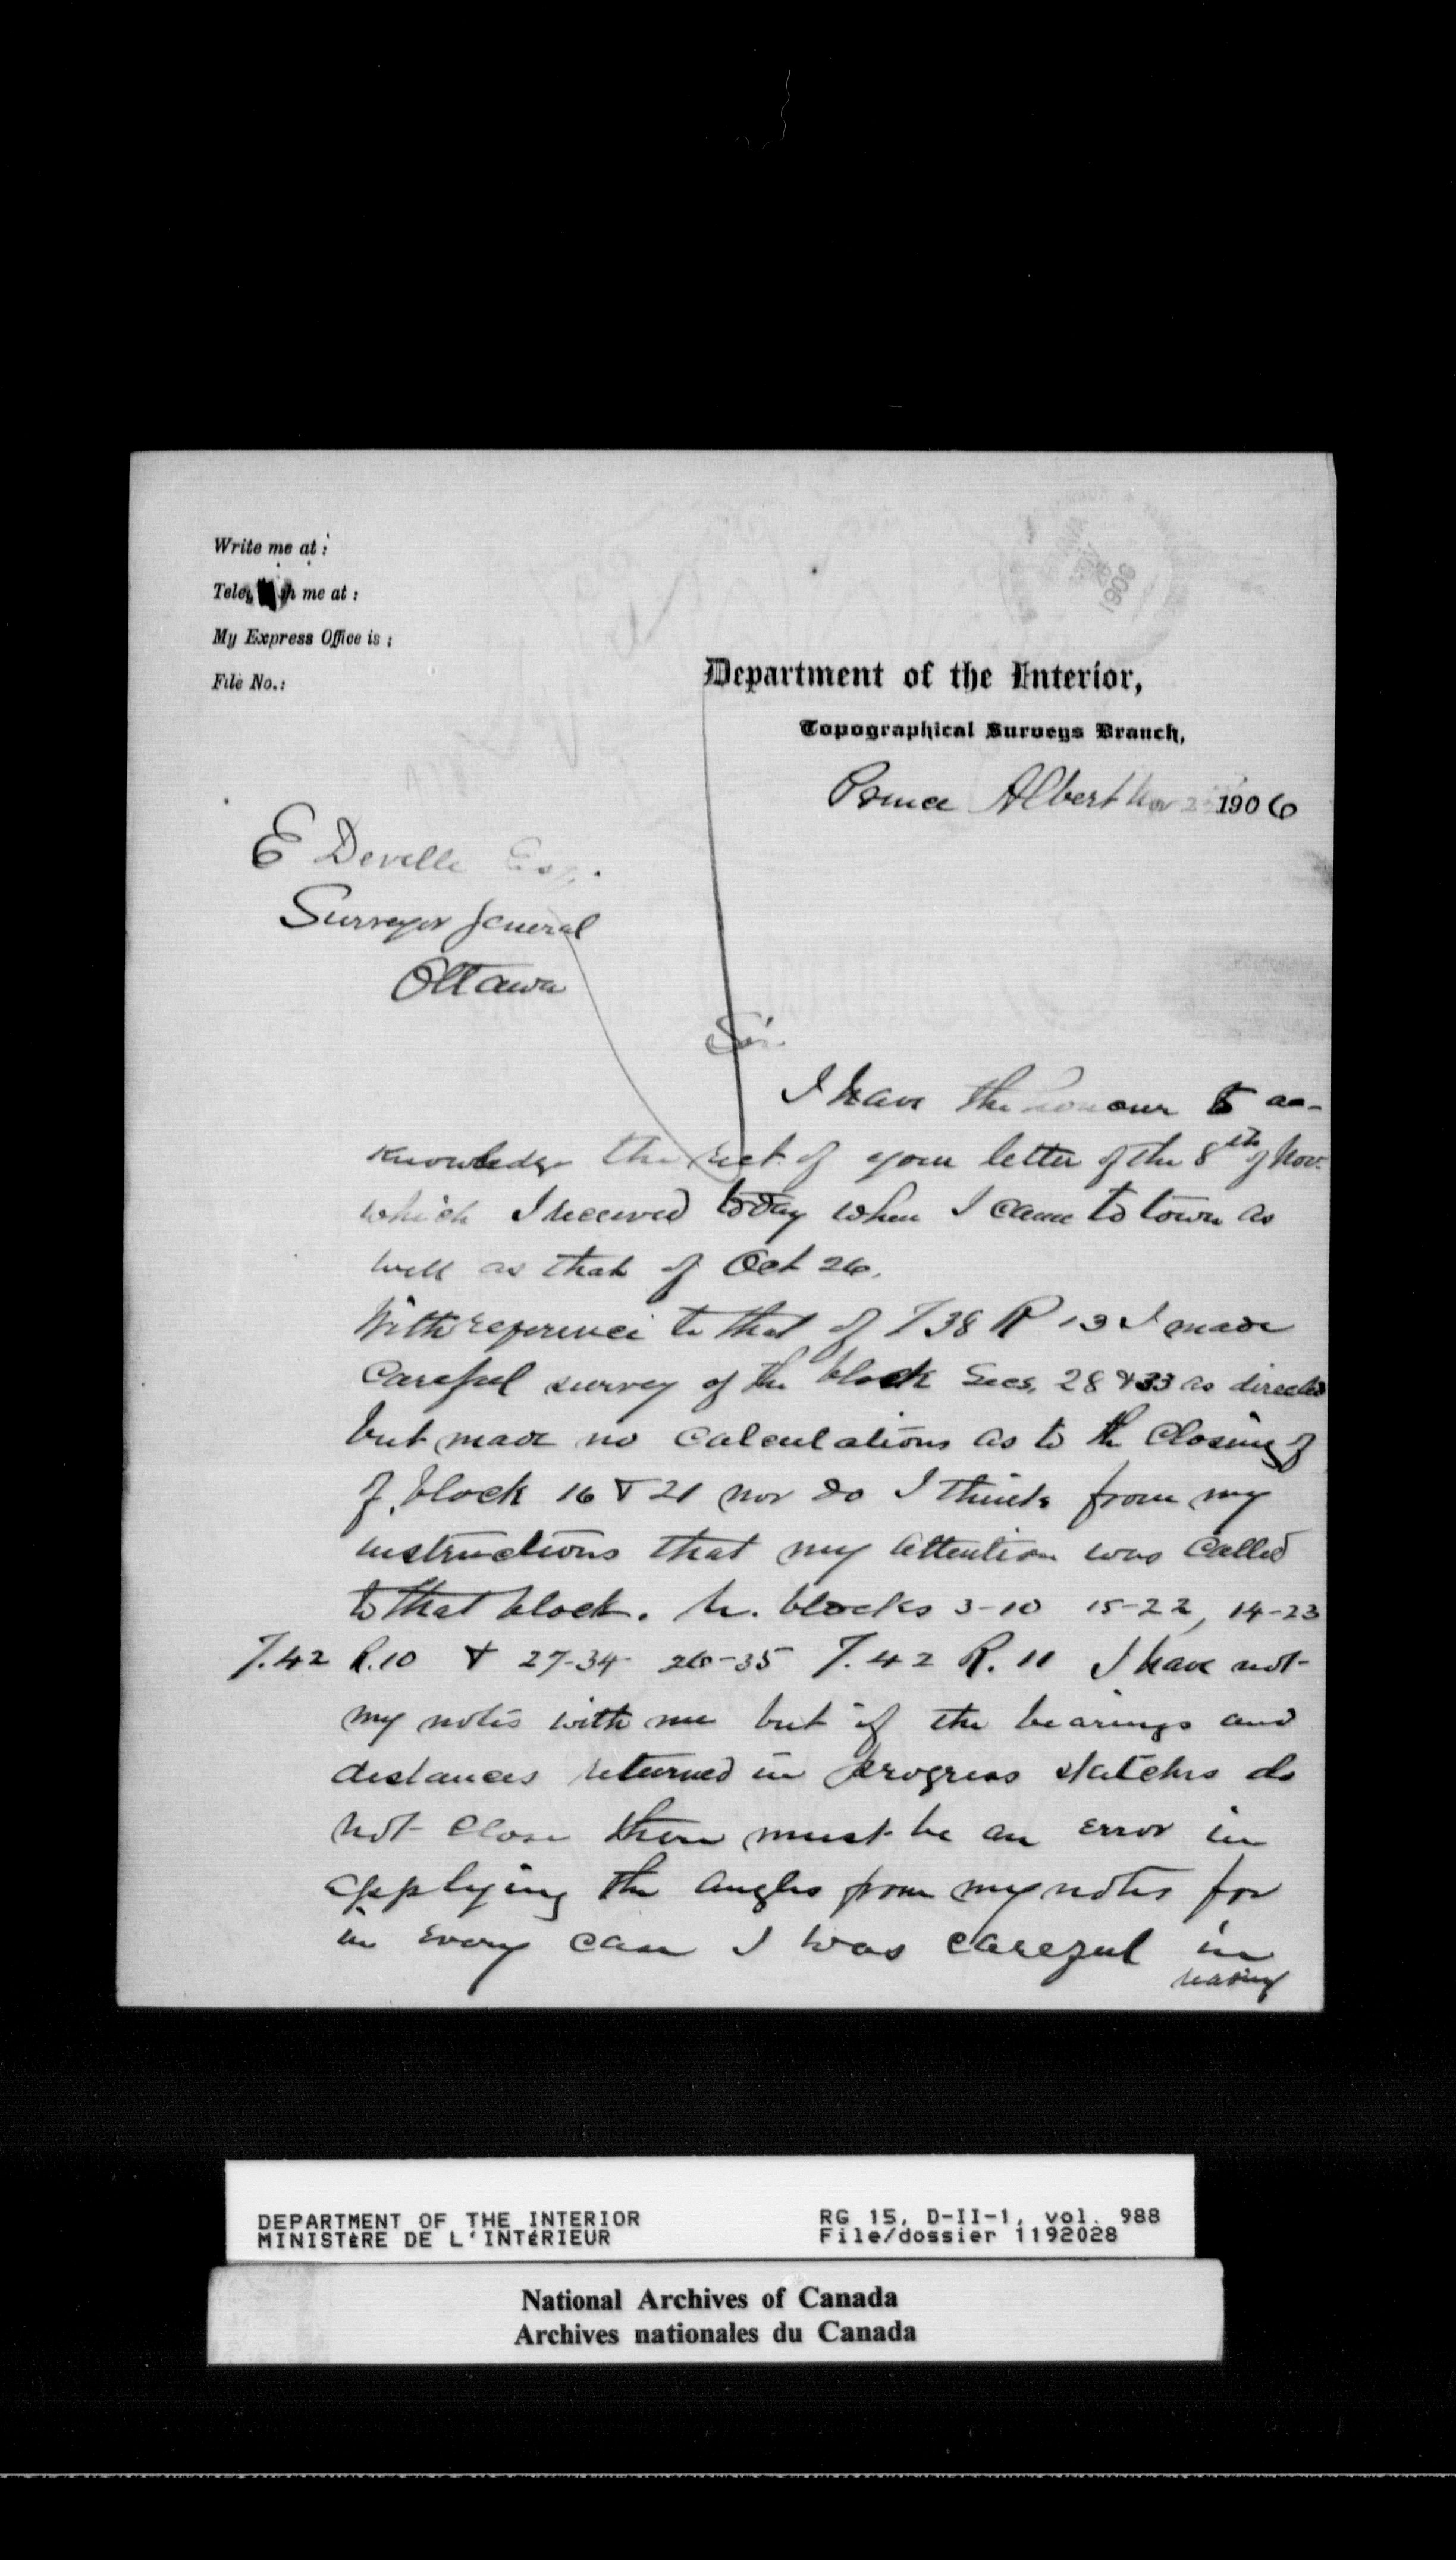 Write me at:
Telegraph me at:
My Express Office is:
File No.:
NOV 1906
Department of the Interior,
Topographical Surveys Branch,
Prince Albert Nov 1906
E Deville Esq.
Surveyor General
Ottawa
Sir.
I have the honour to ac-
knowledge the rect. of your letter of the 8th of Nov.
which I received today when I came to town as
well as that of Oct 26.
With reference to that of T 38 R 13 I made
careful survey of the block Secs. 28 & 33 as directed
but made no calculations as to the closing of
of block 16 & 21 nor do I think from my
instructions that my attention was called
to that block. In blocks 3-10 15-22, 14-23
T.42 R.10 & 27-34 26-35 T.42 R.11 I have not
my notes with me but if the bearings and
distances returned in progress sketches do
not close there must be an error in
applying the angles from my notes for
in every case I was careful in
making
DEPARTMENT OF THE INTERIOR
MINISTÈRE DE L'INTÉRIEUR
RG 15, D-II-1, vol. 988
File/dossier 1192028
National Archives of Canada
Archives nationales du Canada